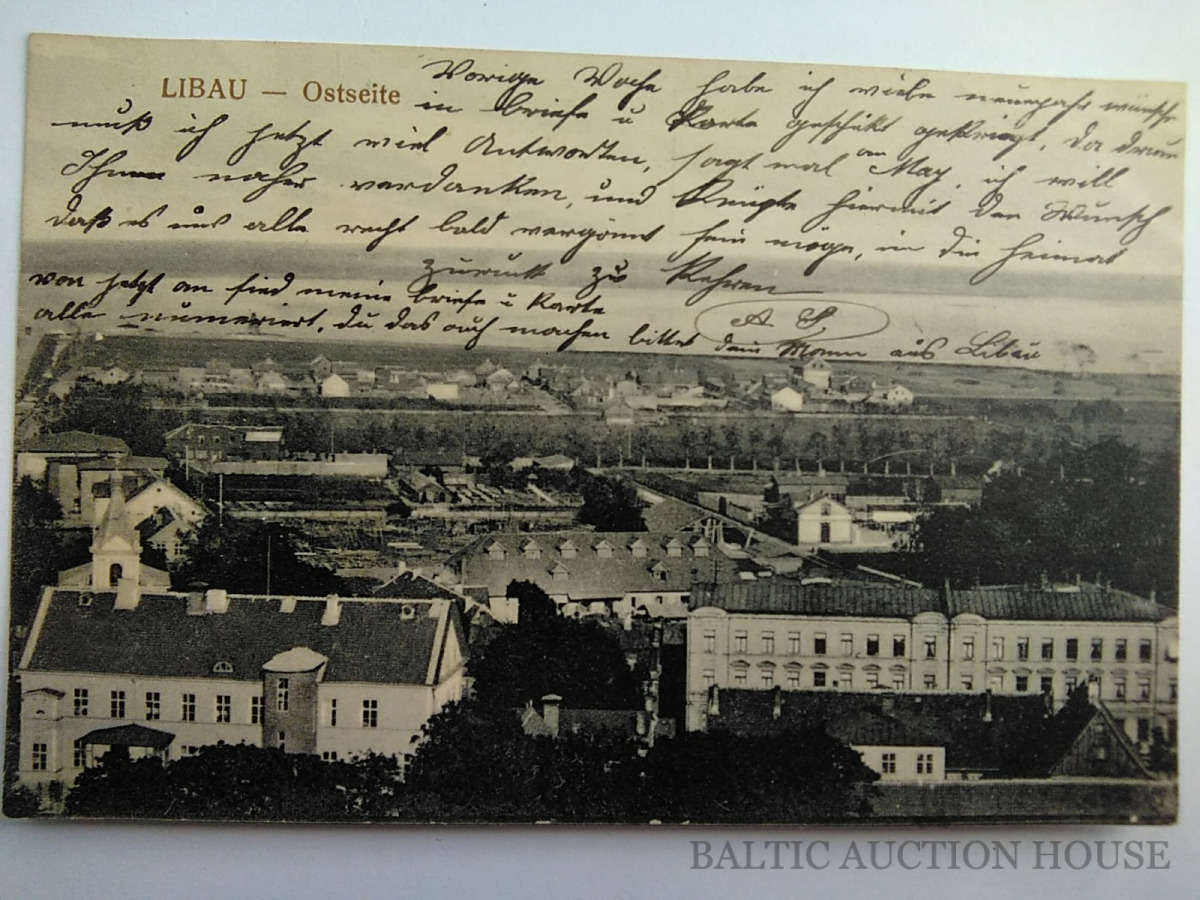 LIBAU — Ostseite
Vorige Woche habe ich wiele neuejahr wünsche
in briefe u Karte geschikt gekriegt, da drum
muß ich jetzt viel Antworten, sagt mal an May, ich will
Ihnen naher verdanken, und Knüpfe hiermit den Wunsch
daß es uns alle recht bald vergönnt sein möge, in die Heimat
zurück zu Kehren
von jetzt an sind meine briefe u Karte
alle numeriert, du das auch machen bitte, dein Mann aus Libau
A S
BALTIC AUCTION HOUSE